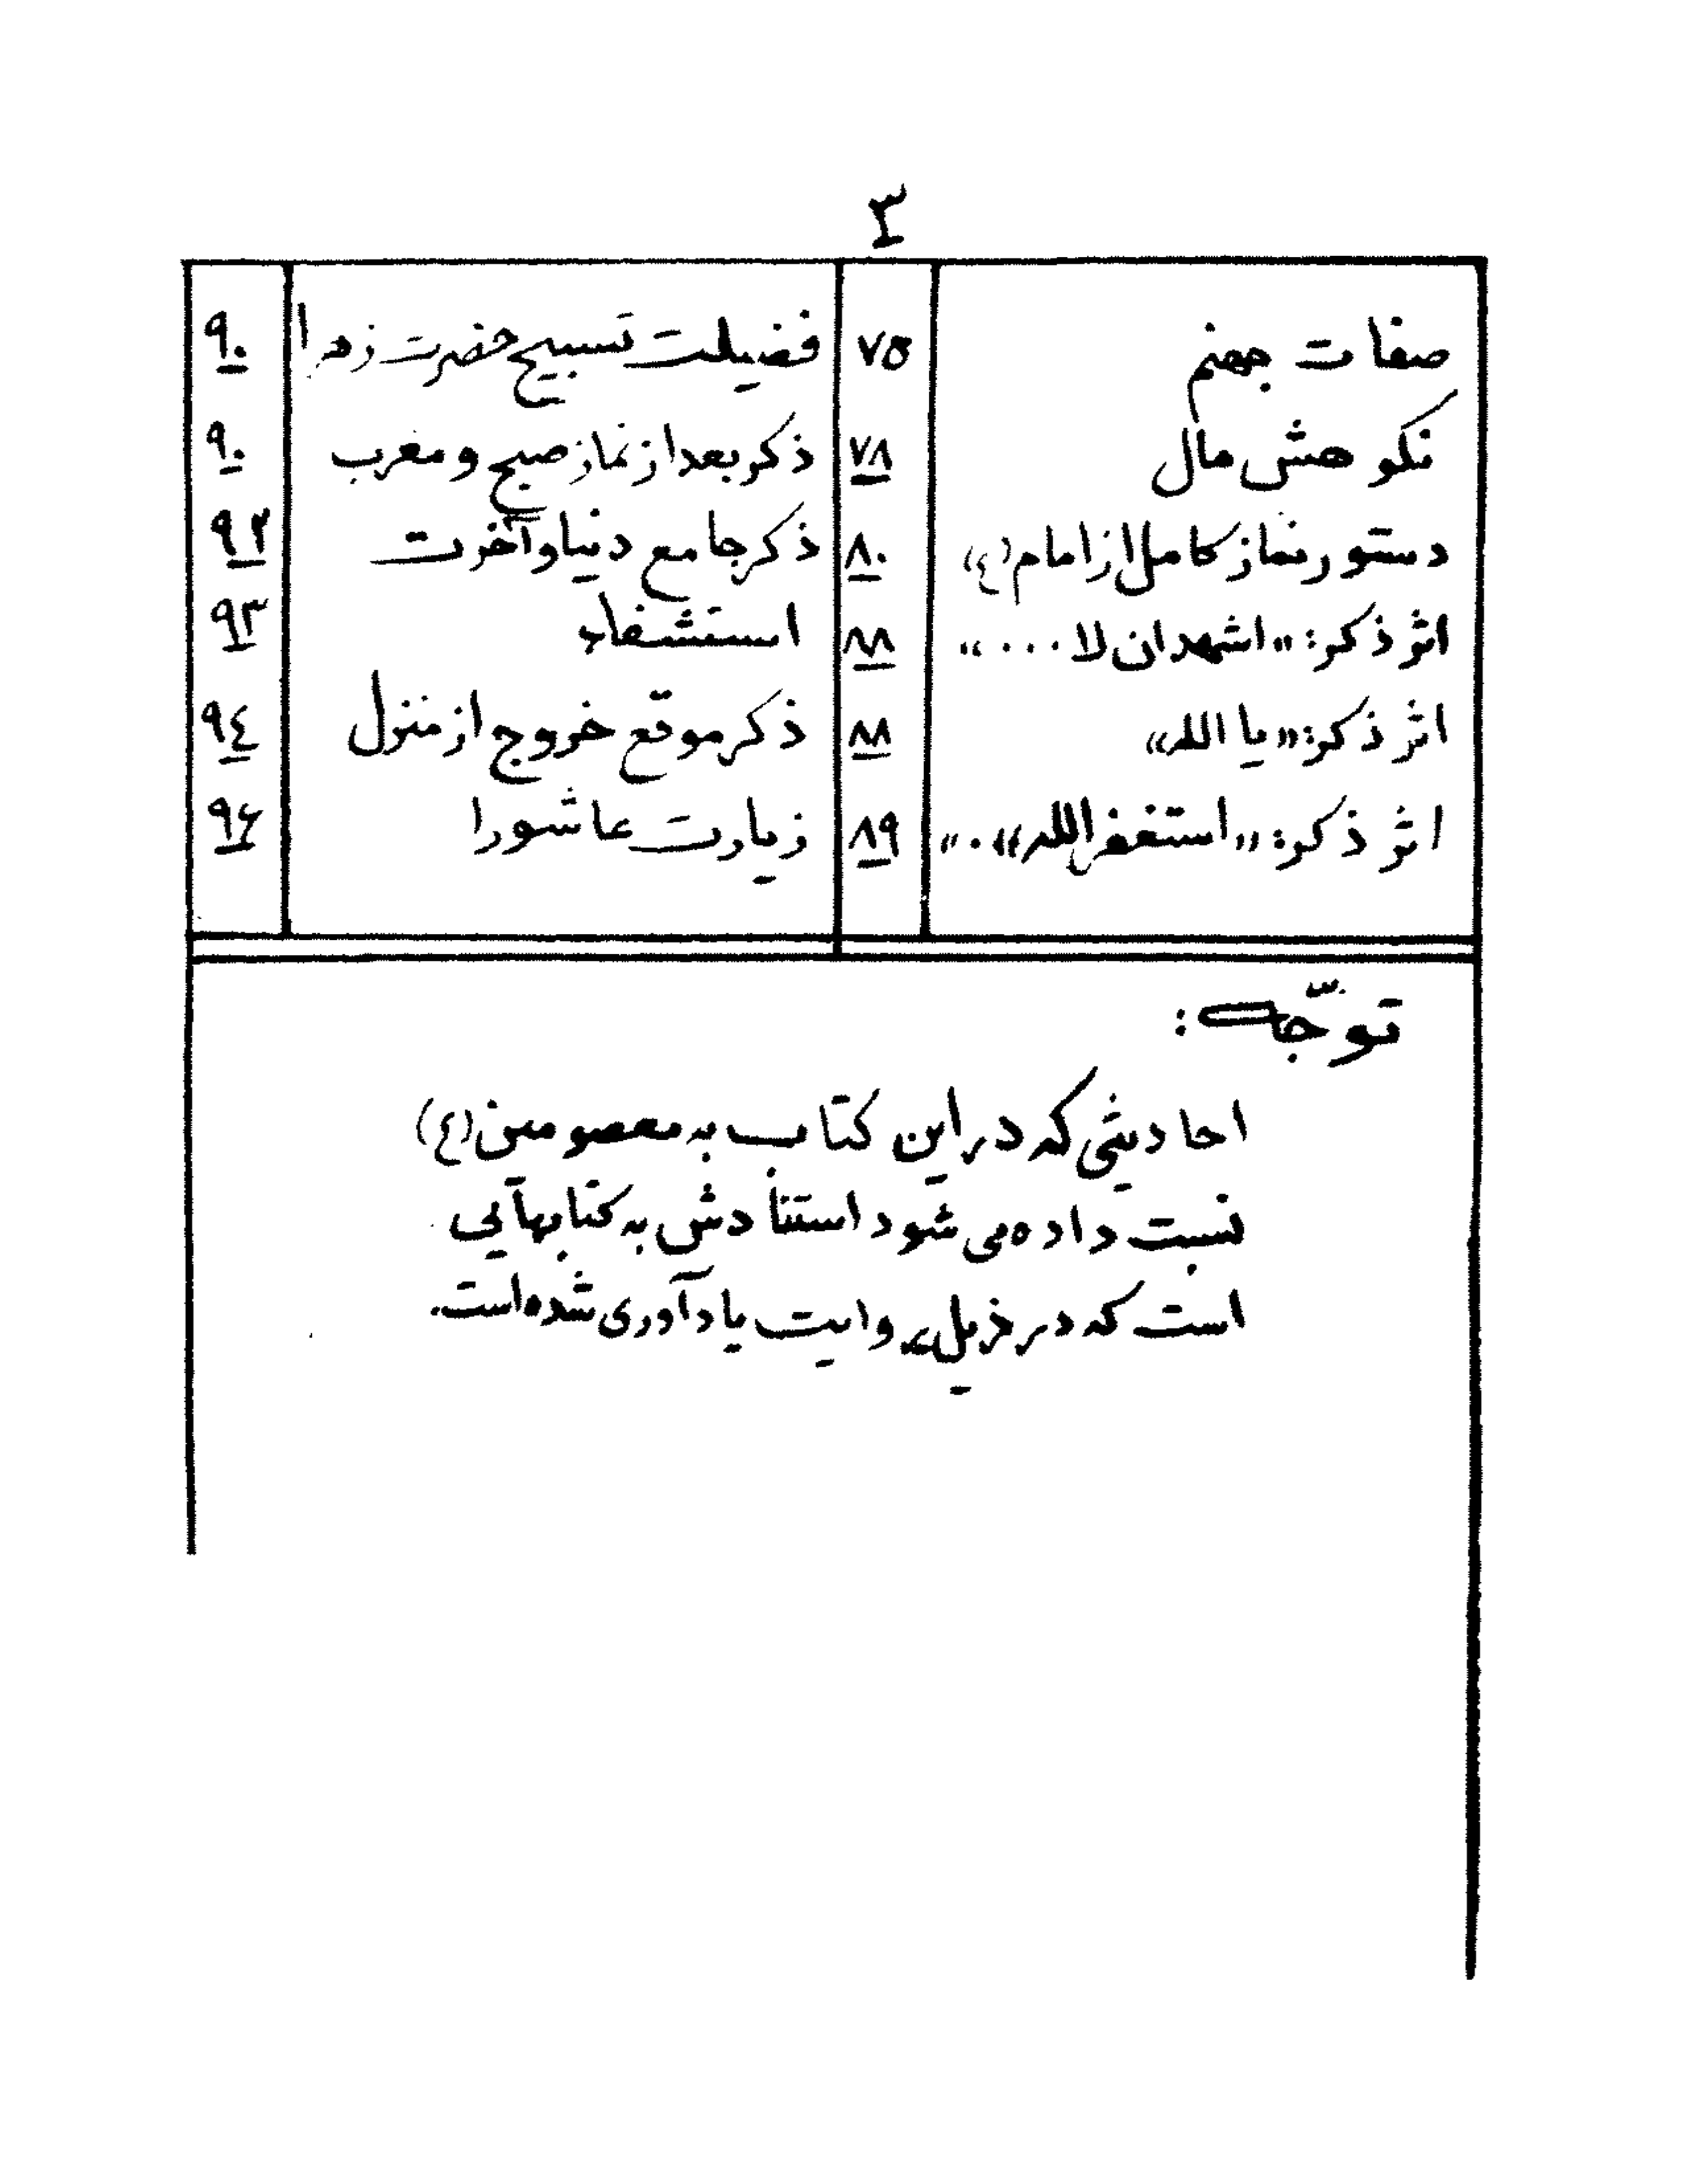 ٣
صفات جهنم ٧۵
نکوهش مال ٧٨
دستور نماز کامل از امام (ع) ٨٠
اثر ذکر: «اشهد ان لا ....» ٨٨
اثر ذکر: «یا الله» ٨٨
اثر ذکر: «استغفر الله».» ٨٩
فضیلت تسبیح حضرت زهرا ٩٠
ذکر بعد از نماز صبح و مغرب ٩٠
ذکر جامع دنیا و آخرت ٩٢
استشفاء ٩٣
ذکر موقع خروج از منزل ٩٤
زیارت عاشورا ٩۶
توجّه:
احادیثی که در این کتاب به معصومین (ع)
نسبت داده می شود استنادش به کتابهایی
است که در ذیل روایت یادآوری شده است.